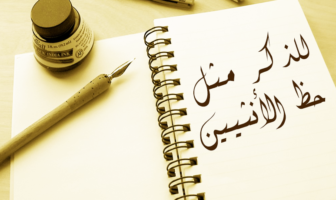 للذكر مثل
حظ الأنثيين